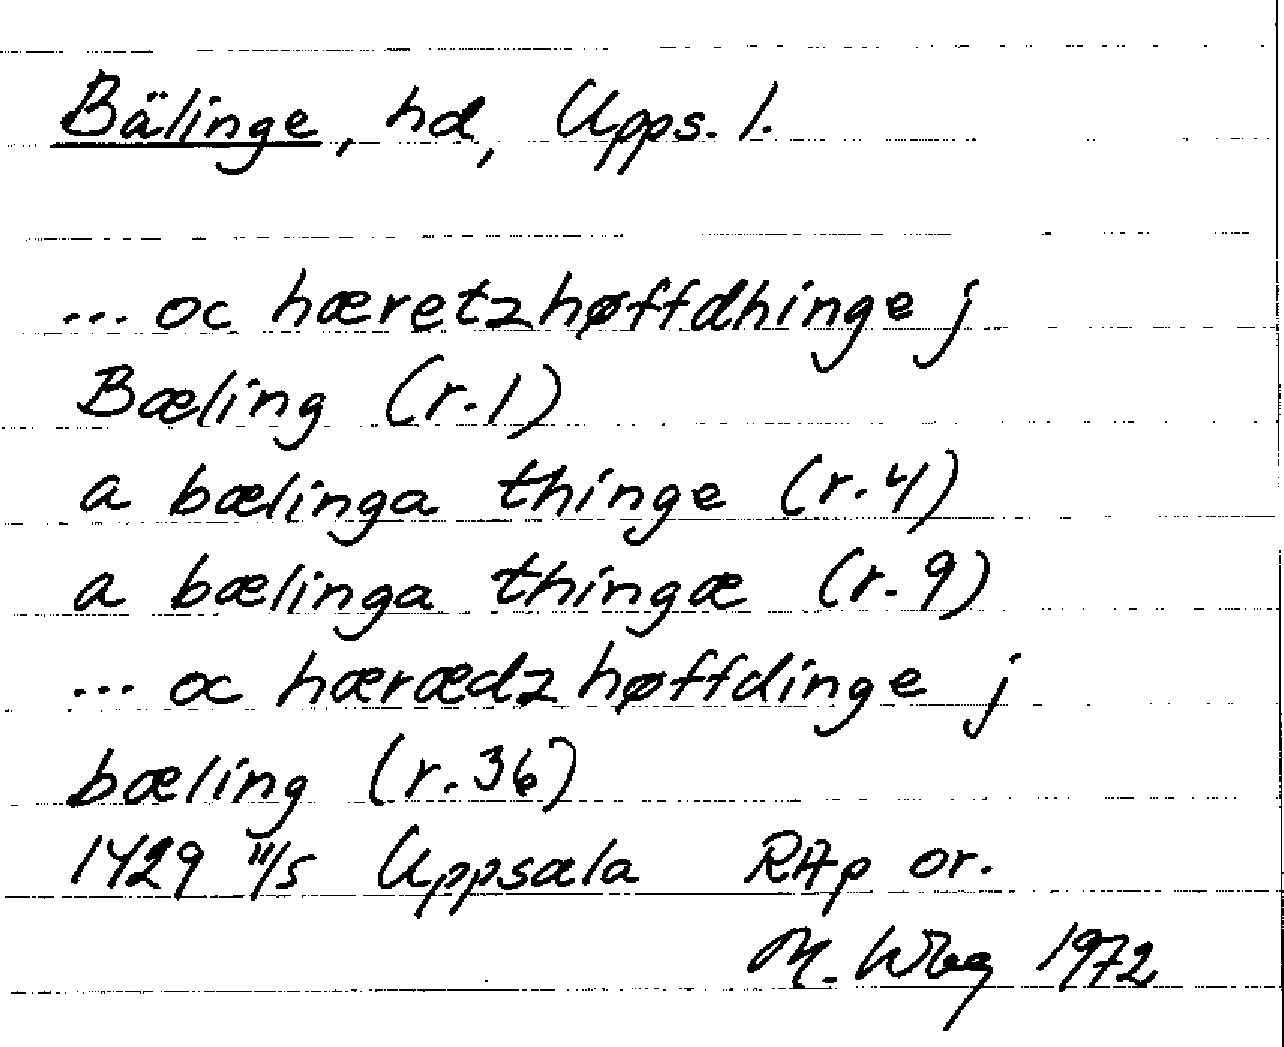 Bälinge, hd, Upps. l.
... oc hæretzhøffdhinge j
Bæling (r.1)
a bælinga thinge (r.4)
a bælinga thingæ (r.9)
... oc hærædz høffdinge j
bæling (r.36)
1429 11/5 Uppsala RAp or.
M. Wbg 1972